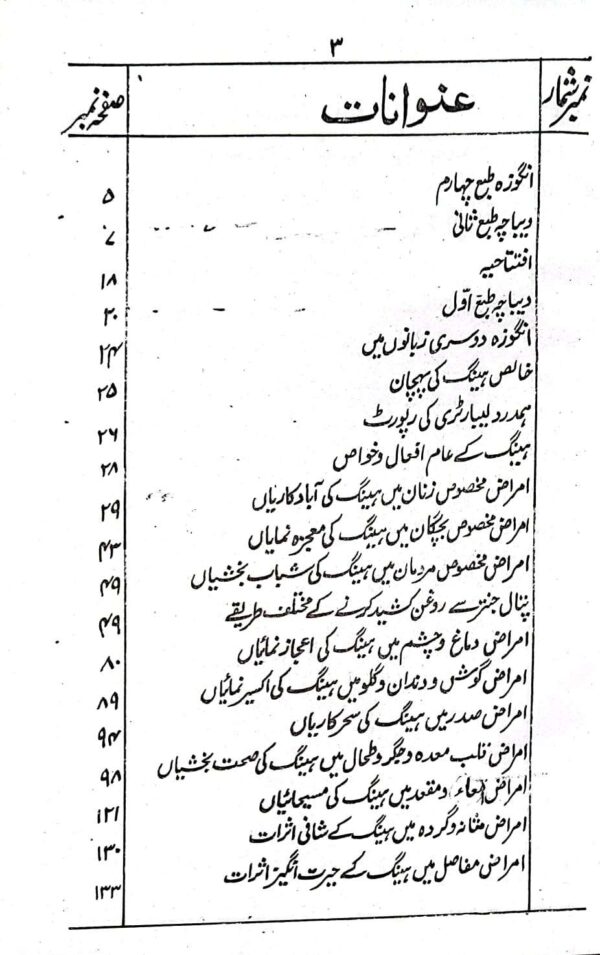 ۳
نمبر شمار عنوانات صفحہ نمبر
انگوزہ طبع چہارم ۵
دیباچہ طبع ثانی ۷
افتتاحیہ ۱۸
دیباچہ طبع اوّل ۲۰
انگوزہ دوسری زبانوں میں ۲۴
خالص ہینگ کی پہچان ۲۵
ہمدرد لیبارٹری کی رپورٹ ۲۶
ہینگ کے عام افعال وخواص ۲۸
امراض مخصوص زنان میں ہینگ کی آبادکاریاں ۲۹
امراض مخصوص بچگان میں ہینگ کی معجزہ نمایاں ۴۳
امراض مخصوص مردمان میں ہینگ کی شباب بخشیاں ۴۹
پتال جنتر سے روغن کشید کرنے کے مختلف طریقے ۴۹
امراض دماغ وچشم میں ہینگ کی اعجاز نمائیاں ۸۰
امراض گوش و دندان وگلو میں ہینگ کی اکسیر نمائیاں ۸۹
امراض صدر میں ہینگ کی سحر کاریاں ۹۴
امراض قلب معدہ وجگر وطحال میں ہینگ کی صحت بخشیاں ۹۸
امراض امعاء ومقعد میں ہینگ کی مسیحائیاں ۱۲۱
امراض مثانہ وگردہ میں ہینگ کے شافی اثرات ۱۳۰
امراض مفاصل میں ہینگ کے حیرت انگیز اثرات ۱۳۳